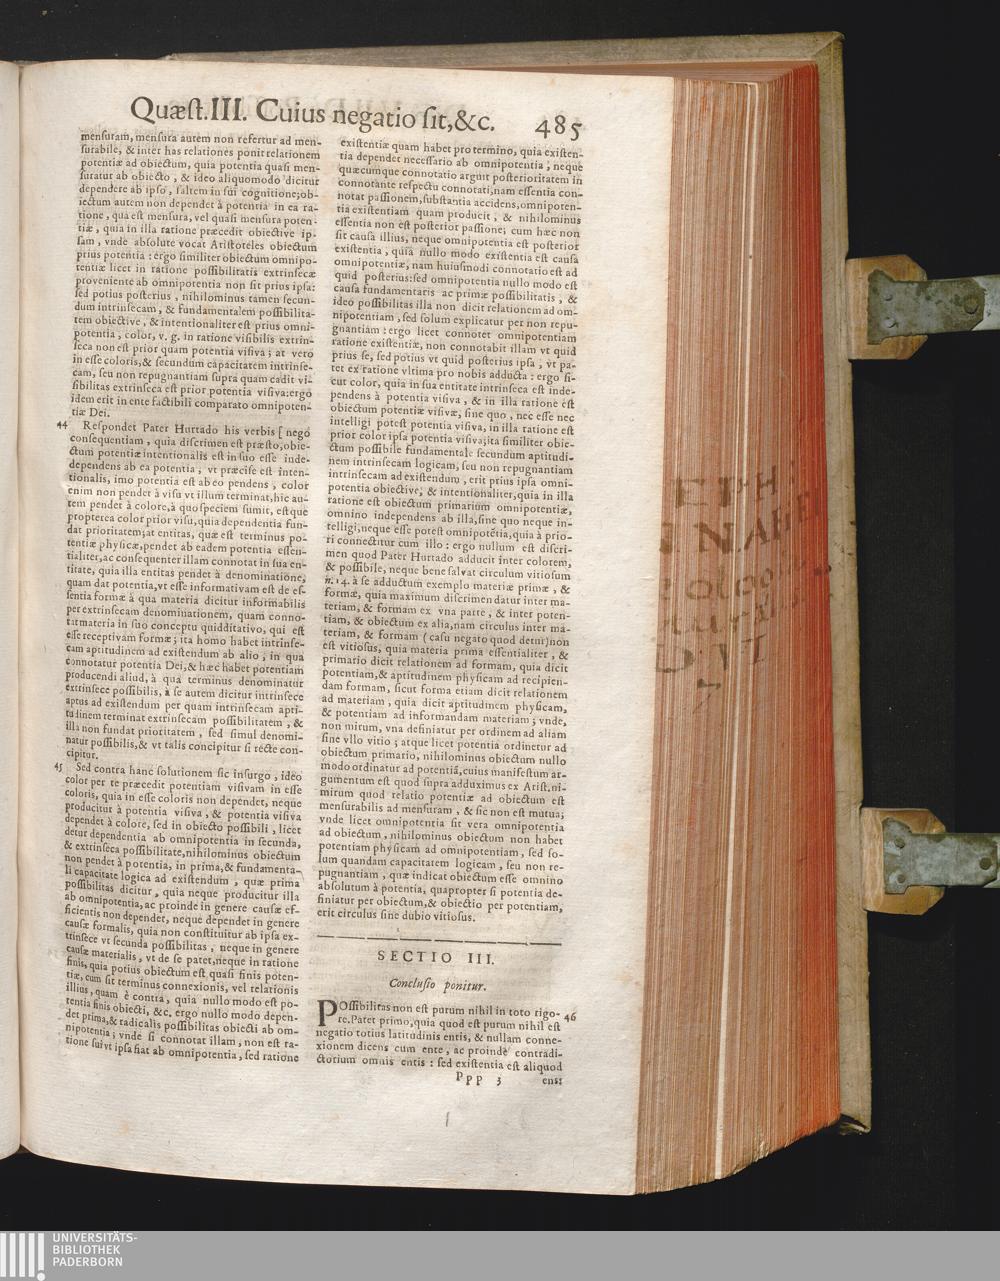 Quæſt.III. Cuius negatio ſit,&c. 485
menſuram, menſura autem non refertur ad men-
ſurabile, & inter has relationes ponit relationem
potentiæ ad obiectum, quia potentia quaſi men-
ſuratur ab obiecto, & ideo aliquomodo dicitur
dependere ab ipſo, ſaltem in ſui cognitione; ob-
iectum autem non dependet à potentia in ea ra-
tione, qua eſt menſura, vel quaſi menſura poten-
tiæ, quia in illa ratione præcedit obiective ip-
ſam, vnde abſolute vocat Ariſtoteles obiectum
prius potentia: ergo ſimiliter obiectum omnipo-
tentiæ licet in ratione poſſibilitatis extrinſecæ
proveniente ab omnipotentia non ſit prius ipſa:
ſed potius poſterius, nihilominus tamen ſecun-
dum intrinſecam, & fundamentalem poſſibilita-
tem obiective, & intentionaliter eſt prius omni-
potentia, color, v. g. in ratione viſibilis extrin-
ſeca non eſt prior quam potentia viſiva; at vero
in eſſe coloris,& ſecundum capacitatem intrinſe-
cam, ſeu non repugnantiam ſupra quam cadit vi-
ſibilitas extrinſeca eſt prior potentia viſiva:ergo
idem erit in ente factibili comparato omnipoten-
tiæ Dei.
44 Reſpondet Pater Hurtado his verbis [ negó
conſequentiam, quia diſcrimen eſt præſto,obie-
ctum potentiæ intentionalis eſt in ſuo eſſe inde-
dependens ab ea potentia, vt præciſe eſt inten-
tionalis, imo potentia eſt ab eo pendens, color
enim non pendet à viſu vt illum terminat,hic au-
tem pendet à colore,à quo ſpeciem ſumit, eſtque
propterea color prior viſu,quia dependentia fun-
dat prioritatem;at entitas, quæ eſt terminus po-
tentiæ phyſicæ,pendet ab eadem potentia eſſen-
tialiter,ac conſequenter illam connotat in ſua en-
titate, quia illa entitas pendet à denominatione,
quam dat potentia,vt eſſe informativam eſt de eſ-
ſentia formæ à qua materia dicitur informabilis
per extrinſecam denominationem, quam conno-
tat materia in ſuo conceptu quidditativo, qui eſt
eſſe receptivam formæ; ita homo habet intrinſe-
cam aptitudinem ad exiſtendum ab alio, in qua
connotatur potentia Dei,& hæc habet potentiam
producendi aliud, à qua terminus denominatur
extrinſece poſſibilis, à ſe autem dicitur intrinſece
aptus ad exiſtendum per quam intrinſecam apti-
tudinem terminat extrinſecam poſſibilitatem, &
illa non fundat prioritatem, ſed ſimul denomi-
natur poſſibilis,& vt talis concipitur ſi recte con-
cipitur.
45 Sed contra hanc ſolutionem ſic inſurgo, ideo
color per te præcedit potentiam viſivam in eſſe
coloris, quia in eſſe coloris non dependet, neque
producitur à potentia viſiva, & potentia viſiva
dependet à colore, ſed in obiecto poſſibili, licet
detur dependentia ab omnipotentia in ſecunda,
& extrinſeca poſſibilitate,nihilominus obiectum
non pendet à potentia, in prima,& fundamenta-
li capacitate logica ad exiſtendum, quæ prima
poſſibilitas dicitur, quia neque producitur illa
ab omnipotentia,ac proinde in genere cauſæ ef-
ficientis non dependet, neque dependet in genere
cauſæ formalis, quia non conſtituitur ab ipſa ex-
trinſece vt ſecunda poſſibilitas, neque in genere
cauſæ materialis, vt de ſe patet,neque in ratione
finis, quia potius obiectum eſt quaſi finis poten-
tiæ, cum ſit terminus connexionis, vel relationis
illius, quam è contra, quia nullo modo eſt po-
tentia finis obiecti, &c. ergo nullo modo depen-
det prima,& radicalis poſſibilitas obiecti ab om-
nipotentia; vnde ſi connotat illam, non eſt ra-
tione ſui vt ipſa fiat ab omnipotentia, ſed ratione
exiſtentiæ quam habet pro termino, quia exiſten-
tia dependet neceſſario ab omnipotentia; neque
quæcumque connotatio arguit poſterioritatem in
connotante reſpectu connotati;nam eſſentia con-
notat paſſionem,ſubſtantia accidens,omnipoten-
tia exiſtentiam quam producit, & nihilominus
eſſentia non eſt poſterior paſſione; cum hæc non
ſit cauſa illius, neque omnipotentia eſt poſterior
exiſtentia, quia nullo modo exiſtentia eſt cauſa
omnipotentiæ, nam huiuſmodi connotatio eſt ad
quid poſterius:ſed omnipotentia nullo modo eſt
cauſa fundamentaris ac primæ poſſibilitatis, &
ideo poſſibilitas illa non dicit relationem ad om-
nipotentiam, ſed ſolum explicatur per non repu-
gnantiam: ergo licet connotet omnipotentiam
ratione exiſtentiæ, non connotabit illam vt quid
prius ſe, ſed potius vt quid poſterius ipſa, vt pa-
tet ex ratione vltima pro nobis adducta: ergo ſi-
cut color, quia in ſua entitate intrinſeca eſt inde-
pendens à potentia viſiva, & in illa ratione eſt
obiectum potentiæ viſivæ, ſine quo, nec eſſe nec
intelligi poteſt potentia viſiva, in illa ratione eſt
prior color ipſa potentia viſiva;ita ſimiliter obie-
ctum poſſibile fundamentale ſecundum aptitudi-
nem intrinſecam logicam, ſeu non repugnantiam
intrinſecam ad exiſtendum, erit prius ipſa omni-
potentia obiective, & intentionaliter,quia in illa
ratione eſt obiectum primarium omnipotentiæ,
omnino independens ab illa,ſine quo neque in-
telligi,neque eſſe poteſt omnipotẽtia,quia à prio-
ri connectitur cum illo: ergo nullum eſt diſcri-
men quod Pater Hurtado adducit inter colorem,
& poſſibile, neque bene ſalvat circulum vitioſum
n. 14. à ſe adductum exemplo materiæ primæ, &
formæ, quia maximum diſcrimen datur inter ma-
teriam, & formam ex vna parte, & inter poten-
tiam, & obiectum ex alia,nam circulus inter ma-
teriam, & formam ( caſu negato quod detur)non
eſt vitioſus, quia materia prima eſſentialiter, &
primario dicit relationem ad formam, quia dicit
potentiam,& aptitudinem phyſicam ad recipien-
dam formam, ſicut forma etiam dicit relationem
ad materiam, quia dicit aptitudinem phyſicam,
& potentiam ad informandam materiam; vnde,
non mirum, vna definiatur per ordinem ad aliam
ſine vllo vitio; atque licet potentia ordinetur ad
obiectum primario, nihilominus obiectum nullo
modo ordinatur ad potentiã,cuius manifeſtum ar-
gumentum eſt quod ſupra adduximus ex Ariſt.ni-
mirum quod relatio potentiæ ad obiectum eſt
menſurabilis ad menſuram, & ſic non eſt mutua;
vnde licet omnipotentia ſit vera omnipotentia
ad obiectum, nihilominus obiectum non habet
potentiam phyſicam ad omnipotentiam, ſed ſo-
lum quandam capacitatem logicam, ſeu non re-
pugnantiam, quæ indicat obiectum eſſe omnino
abſolutum à potentia, quapropter ſi potentia de-
finiatur per obiectum,& obiectio per potentiam,
erit circulus ſine dubio vitioſus.
SECTIO III.
Concluſio ponitur.
POſſibilitas non eſt purum nihil in toto rigo- 46
re.Patet primo,quia quod eſt purum nihil eſt
negatio totius latitudinis entis, & nullam conne-
xionem dicens cum ente, ac proinde contradi-
ctorium omnis entis: ſed exiſtentia eſt aliquod
Ppp 3 ens:
UNIVERSITÄTS-
BIBLIOTHEK
PADERBORN